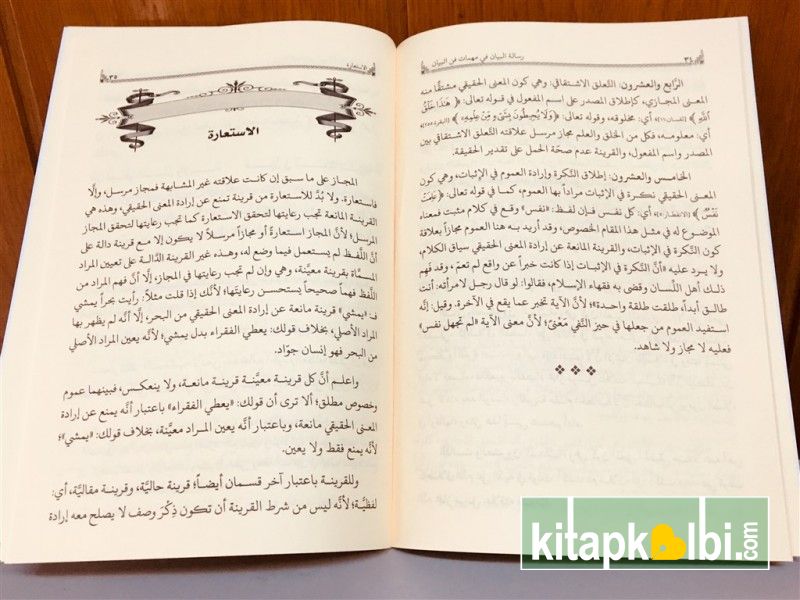 ٣٤
رسالة البيان في مهمات فن البيان
الرَّابع والعشرون: التَّعلق الاشتقاقي: وهي كون المعنى الحقيقي مشتقًا منه
المعنى المجازي، كإطلاق المصدر على اسم المفعول في قوله تعالى: ﴿هَٰذَا خَلْقُ
اللَّهِ﴾ [لقمان:١١] أي: مخلوقه، وقوله تعالى: ﴿وَلَا يُحِيطُونَ بِشَيْءٍ مِّنْ عِلْمِهِ﴾ [البقرة:٢٥٥]
أي: معلومه، فكل من الخلق والعلم مجاز مرسل علاقته التَّعلق الاشتقاقي بين
المصدر واسم المفعول، والقرينة عدم صحّة الحمل على تقدير الحقيقة.
الخامس والعشرون: إطلاق النَّكرة وإرادة العموم في الإثبات، وهي كون
المعنى الحقيقي نكرة في الإثبات مراداً بها العموم، كما في قوله تعالى: ﴿عَلِمَتْ
نَفْسٌ﴾ [الانفطار:٥] أي: كل نفس فإن لفظ: «نفس» وقع في كلام مثبت فمعناه
الموضوع له في مثل هذا المقام الخصوص، وقد أريد به هنا العموم مجازاً بعلاقة
كون النَّكرة في الإثبات، والقرينة المانعة عن إرادة المعنى الحقيقي سياق الكلام،
ولا يرد عليه «أنَّ النَّكرة في الإثبات إذا كانت خبراً عن واقع لم تعمّ، وقد فهم
ذلك أهل اللِّسان وقضى به فقهاء الإسلام، فقالوا: لو قال رجل لامرأته: أنت
طالق أبداً، طلقت طلقة واحدة»؛ لأنَّ الآية تخبر عما يقع في الآخرة. وقيل: إنَّه
استفيد العموم من جعلها في حيز النَّفي مَعْنىً؛ لأنَّ معنى الآية «لم تجهل نفس»
فعليه لا مجاز ولا شاهد.
الاستعارة
٣٥
الاستعارة
المجاز على ما سبق إن كانت علاقته غير المشابهة فمجاز مرسل، وإلَّا
فاستعارة. ولا بُدَّ للاستعارة من قرينة تمنع عن إرادة المعنى الحقيقي، وهذه هي
القرينة المانعة تجب رعايتها لتحقق الاستعارة كما تجب رعايتها لتحقق المجاز
المرسل؛ لأنَّ المجاز استعارةً أو مجازاً مرسلاً لا يكون إلا مع قرينة دالة على
أنَّ اللَّفظ لم يستعمل فيما وضع له، وهذه غير القرينة الدَّالة على تعيين المراد
المسمَّاة بقرينة معيَّنة، وهي وإن لم تجب رعايتها في المجاز، إلَّا أنَّ فهم المراد من
اللَّفظ فهماً صحيحاً يستحسن رعايتَها؛ لأنَّك إذا قلت مثلاً: رأيت بحراً يمشي
فـ «يمشي» قرينة مانعة عن إرادة المعنى الحقيقي من البحر، إلَّا أنَّه لم يظهر بها
المراد الأصلي، بخلاف قولك: يعطي الفقراء بدل يمشي؛ لأنَّه المراد الأصلي
من البحر فهو إنسان جوّاد.
واعلم أنَّ كل قرينة معيَّنة قرينة مانعة، ولا ينعكس، فبينهما عموم
وخصوص مطلق؛ ألا ترى أن قولك: «يعطي الفقراء» باعتبار أنَّه يمنع عن إرادة
المعنى الحقيقي مانعة، وباعتبار أنَّه يعين المراد معيَّنة، بخلاف قولك: «يمشي»؛
لأنَّه يمنع فقط ولا يعين.
وللقرينة باعتبار آخر قسمان أيضاً؛ قرينة حاليَّة، وقرينة مقاليَّة، أي:
لفظيَّة؛ لأنَّه ليس من شرط القرينة أن تكون ذِكْرَ وصف لا يصلح معه إرادة
kitapkalbi.com